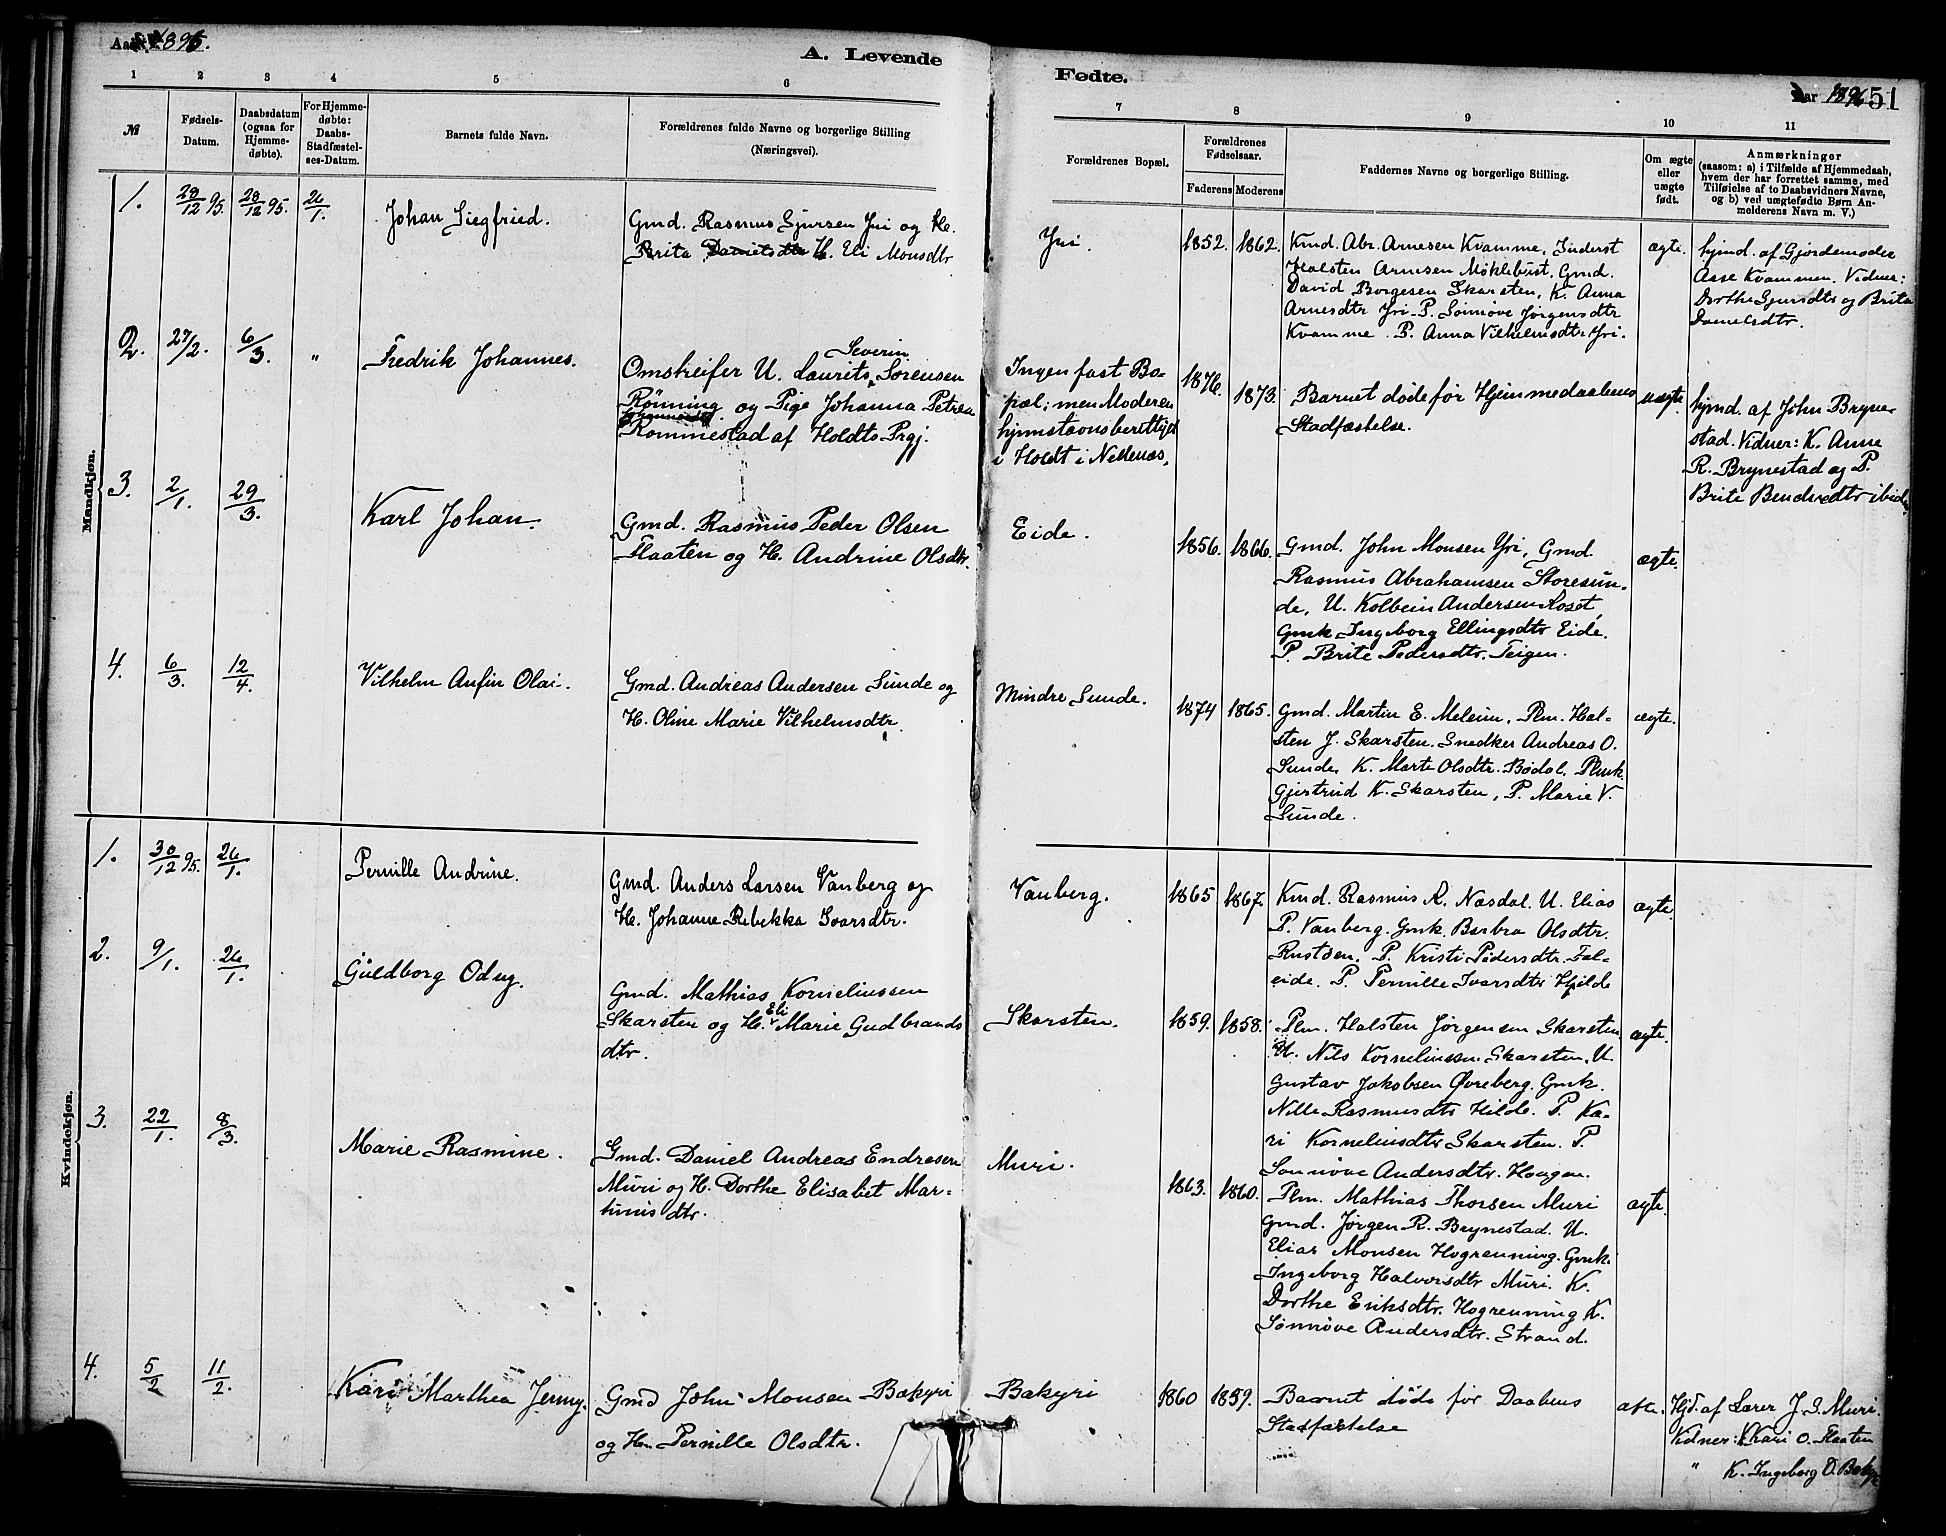 Aar 1896.
A. Levende
1 2 3 4 5 6
№
Fødsels-
Datum.
Daabsdatum
(ogsaa for
Hjemme-
døbte).
For Hjemme-
døbte:
Daabs-
Stadfæstel-
ses-Datum.
Barnets fulde Navn.
Forældrenes fulde Navne og borgerlige Stilling
(Næringsvei).
Mandkjøn.
1. 28/12 95. 28/12 95. 26/1. Johan Siegfried.
Gmd. Rasmus Sjursen Yri og Ke.
Brita Danielsdtr H. Eli Monsdtr
2. 27/2. 6/3. " Fredrik Johannes.
Severin
Omstreifer U. Laurits Sørensen
Rønning og Pige Johanna Petrea
Rommestad af Holdts Prgj.
3. 2/1. 29/3. Karl Johan.
Gmd. Rasmus Peder Olsen
Flaaten og H. Andrine Olsdtr.
4. 6/3. 12/4. Vilhelm Anfin Olai.
Gmd. Andreas Andersen Sunde og
H. Oline Marie Vilhelmsdtr.
Kvindekjøn.
1. 30/12 95. 26/1. Pernille Andrine.
Gmd. Anders Larsen Vanberg og
H. Johanne Rebekka Ivarsdtr.
2. 9/1. 26/1. Guldborg Odny.
Gmd. Mathias Korneliussen
Eli
Skarsten og H. Marie Gudbrands
dtr.
3. 22/1. 8/3. Marie Rasmine.
Gmd. Daniel Andreas Endresen
Muri og H. Dorthe Elisabet Mar-
tinusdtr.
4. 5/2 11/2. Kari Marthea Jenny.
Gmd John Monsen Bakyri
og H. Pernille Olsdtr.
Fødte.
Aar 1896 51
7 8 9 10 11
Forældrenes Bopæl.
Forældrenes
Fødselsaar.
Faderens Moderens
Faddernes Navne og borgerlige Stilling.
Om ægte
eller
uægte
født.
Anmærkninger
(saasom: a) i Tilfælde af Hjemmedaab,
hvem der har forrettet samme, med
Tilføielse af to Daabsvidners Navne,
og b) ved uægtefødte Børn An-
melderens Navn m. V.)
Yri. 1852. 1862. Kmd. Abr. Arnesen Kvamme, Inderst
Halsten Arnesen Møklebust. Gmd.
David Borgesen Skarsten, K. Anna
Arnesdtr Yri. P. Sønnøve Jørgensdtr
Kvamme. P. Anna Vilhelmsdtr Yri.
ægte.
hjmd. af Gjordemoder
Aase Kvammen. Vidner:
Dorthe Sjursdtr og Brita
Danielsdtr.
Ingen fast Bo-
pæl; men Moderen
hjemstavnsberettiget
i Holdt i Nedenæs.
1876. 1873. Barnet døde før Hjemmedaabens
Stadfæstelse.
uægte.
hjmd. af John Bryne-
stad. Vidner: K. Anne
R. Brynestad og P.
Brite Bendiksdtr ibid.
Eide. 1856. 1866. Gmd. John Monsen Yri, Gmd.
Rasmus Abrahamsen Storesun-
de, U. Kolbein Andersen Roset,
Gmk Ingeborg Ellingsdtr Eide.
P. Brite Pedersdtr. Teigen.
ægte.
Mindre Sunde. 1874 1865. Gmd. Martin E. Meleim, Plm. Hal-
sten J. Skarsten. Snedker Andreas O.
Sunde. K. Marte Olsdtr. Bødal. Plmk.
Gjertrud K. Skarsten, P. Marie V.
Sunde.
ægte.
Vanberg. 1865 1867. Kmd. Rasmus R. Nesdal. U. Elias
P. Vanberg. Gmk. Barbra Olsdtr.
Rustøen. P. Kristi Pedersdtr. Fal-
eide. P. Pernille Ivarsdtr Hjelde
ægte
Skarsten. 1859. 1858. Plm. Halsten Jørgensen Skarsten
U. Nils Korneliussen Skarsten. U.
Gustav Jakobsen Øvreberg. Gmk.
Nille Rasmusdtr Hilde. P. Ka-
ri Korneliusdtr Skarsten. P.
Sønnøve Andersdtr. Haugen.
ægte.
Muri. 1863. 1860. Plm. Mathias Thorsen Muri
Gmd. Jørgen R. Brynestad. U.
Elias Monsen Hogrenning. Gmk.
Ingeborg Halvorsdtr Muri. K.
Dorthe Eriksdtr. Hogrenning K.
Sønnøve Andersdtr. Strand.
ægte.
Bakyri 1860 1859. Barnet døde før Daabens
Stadfæstelse
ægte.
Hjd. af Lærer J. S. Muri.
Vidner: K. Kari O. Flaaten
" K. Ingeborg O. Bakyri